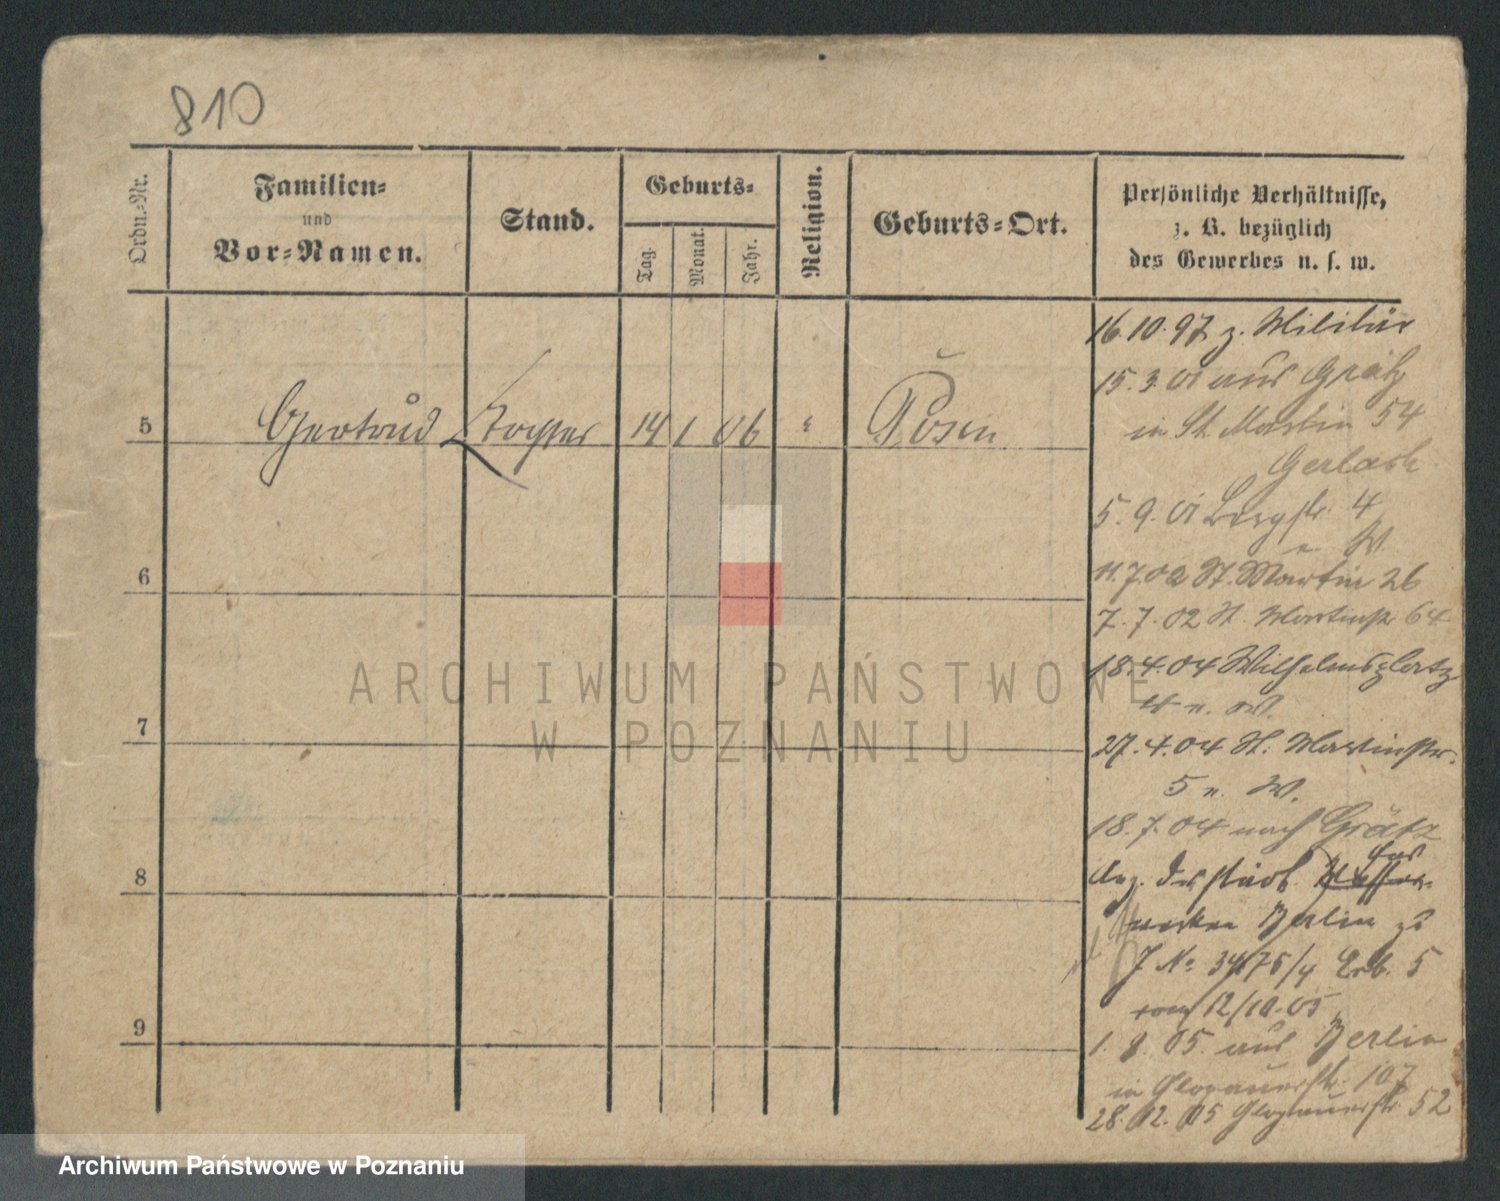 810
Ordn.-Nr.
Familien-
und
Vor-Namen.
Stand.
Geburts-
Tag.
Monat.
Jahr.
Religion.
Geburts-Ort.
Persönliche Verhältnisse,
z. B. bezüglich
des Gewerbes u. s. w.
5
Gertrud
Tochter
14
1
06
"
Posen
6
7
8
9
16.10.97 z. Militär
15.3.01 aus Grätz
in St. Martin 54
Gerlach
5.9.01 Bergstr. 4
u. W.
11.7.02 St. Martin 26
7.7.02 St. Martinstr 64
18.4.04 Wilhelmsplatz
u. W.
27.4.04 St. Martinstr.
5 u. W.
18.7.04 nach Grätz
der städt.
Berlin
J No
5
vom 12/10.05
1. 8. 05. aus Berlin
in Glogauerstr. 107
28. 12. 05 Glogauerstr 52
ARCHIWUM PAŃSTWOWE
W POZNANIU
Archiwum Państwowe w Poznaniu